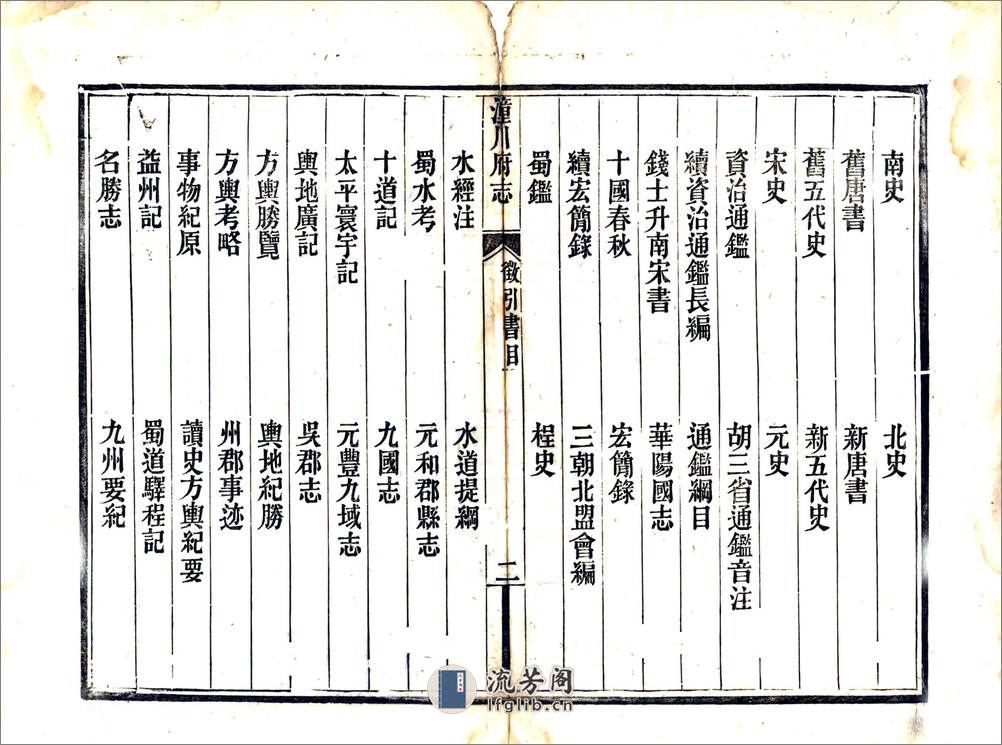 南史 北史
舊唐書 新唐書
舊五代史 新五代史
宋史 元史
資治通鑑 胡三省通鑑音注
續資治通鑑長編 通鑑綱目
錢士升南宋書 華陽國志
十國春秋 宏簡錄
續宏簡錄 三朝北盟會編
蜀鑑 桯史
潼川府志 徵引書目 二
水經注 水道提綱
蜀水考 元和郡縣志
十道記 九國志
太平寰宇記 元豐九域志
輿地廣記 吳郡志
方輿勝覽 輿地紀勝
方輿考略 州郡事迹
事物紀原 讀史方輿紀要
益州記 蜀道驛程記
名勝志 九州要紀
流芳阁
lfglib.cn